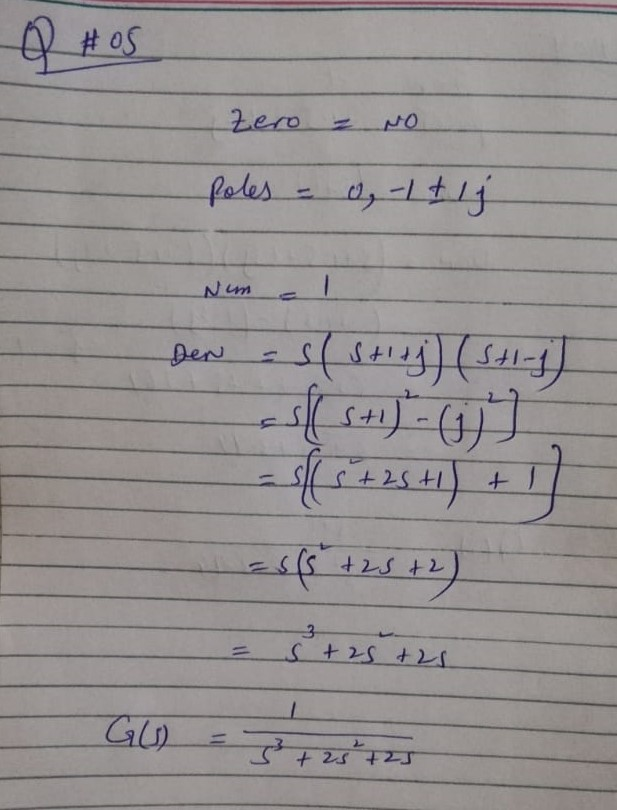 Q # 05
Zero = NO
Poles = 0, -1 ± 1j
Num = 1
Den = s( s+1+j) ( s+1-j)
= s[( s+1)² - (j)²]
= s[( s²+2s+1) + 1]
= s(s² +2s +2)
= s³ + 2s² +2s
G(s) = 1 / s³ + 2s² +2s